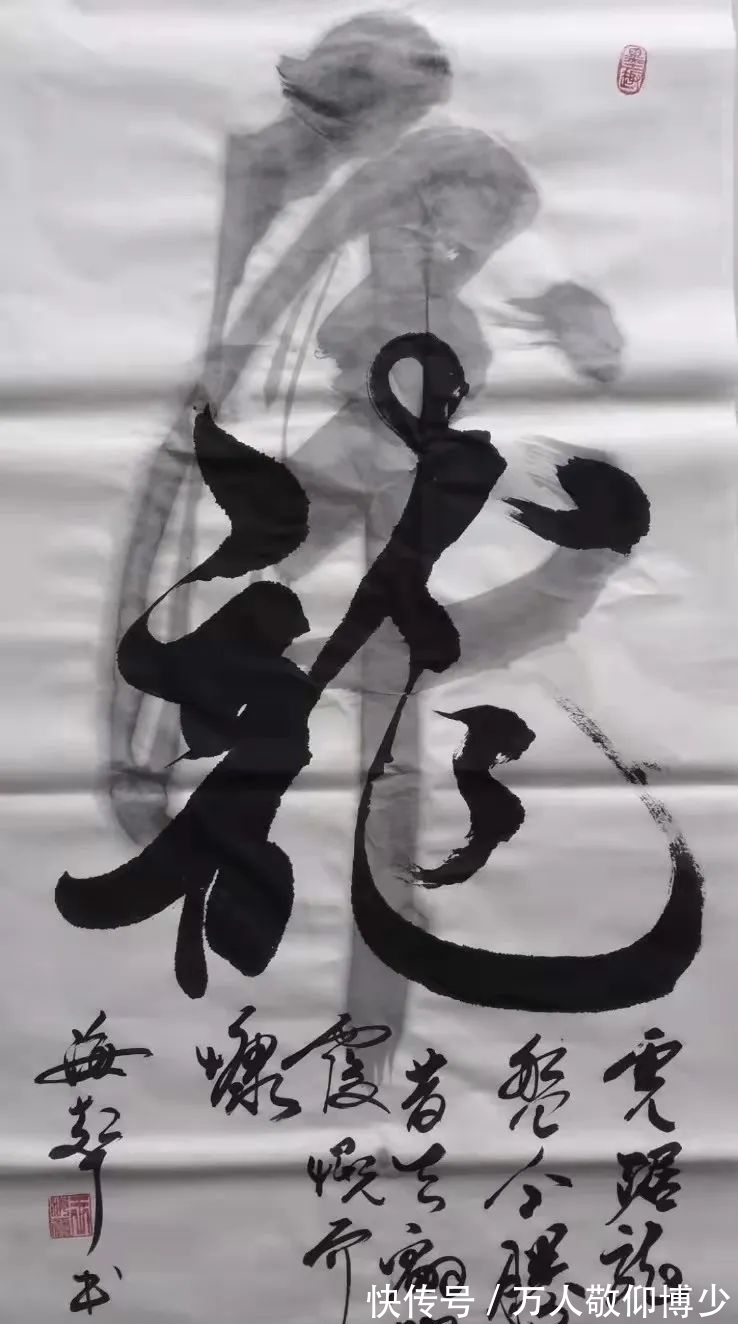 虎
龍
虎踞龍
盤今勝
昔天翻
覆慨而
慷
书
快传号 / 万人敬仰博少